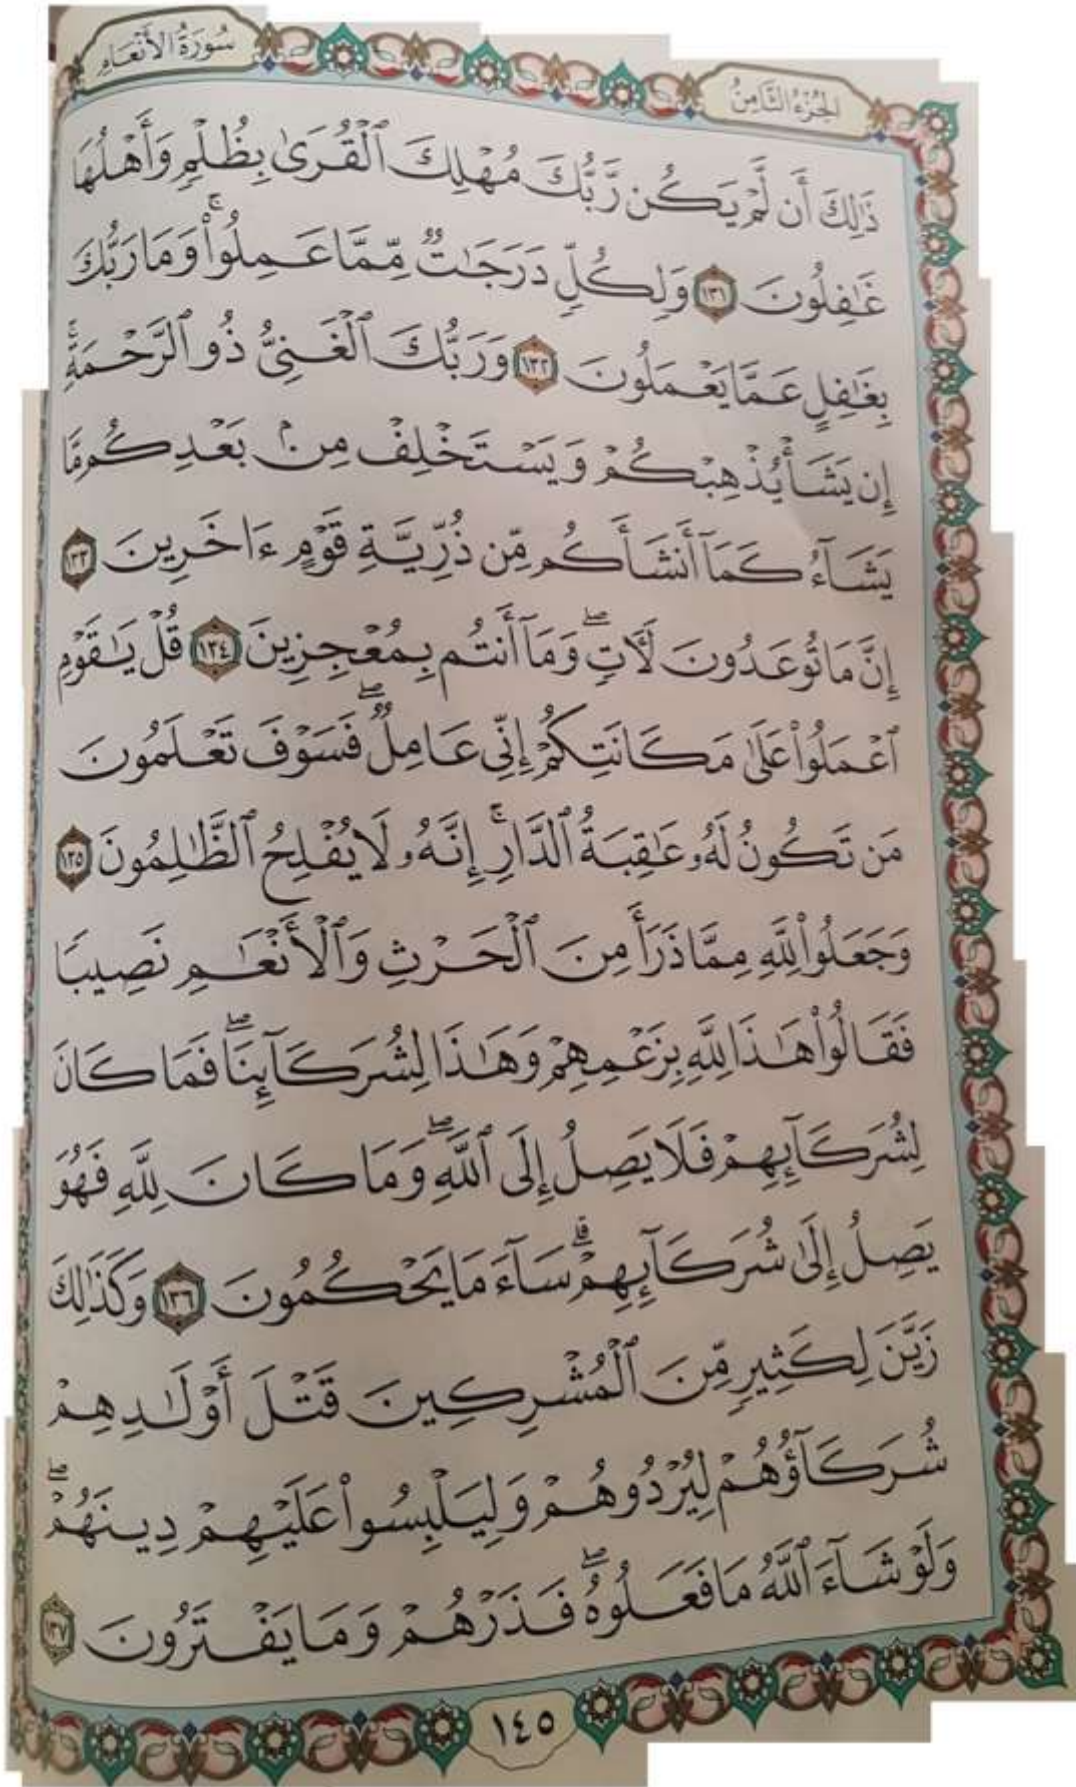 الجُزْءُ الثَّامِنُ
سُورَةُ الأَنْعَامِ
ذَٰلِكَ أَن لَّمْ يَكُن رَّبُّكَ مُهْلِكَ ٱلْقُرَىٰ بِظُلْمٍ وَأَهْلُهَا
غَٰفِلُونَ ١٣١ وَلِكُلٍّ دَرَجَٰتٌ مِّمَّا عَمِلُوا۟ ۚ وَمَا رَبُّكَ
بِغَٰفِلٍ عَمَّا يَعْمَلُونَ ١٣٢ وَرَبُّكَ ٱلْغَنِىُّ ذُو ٱلرَّحْمَةِ ۚ
إِن يَشَأْ يُذْهِبْكُمْ وَيَسْتَخْلِفْ مِنۢ بَعْدِكُم مَّا
يَشَآءُ كَمَآ أَنشَأَكُم مِّن ذُرِّيَّةِ قَوْمٍ ءَاخَرِينَ ١٣٣
إِنَّ مَا تُوعَدُونَ لَءَاتٍ ۖ وَمَآ أَنتُم بِمُعْجِزِينَ ١٣٤ قُلْ يَٰقَوْمِ
ٱعْمَلُوا۟ عَلَىٰ مَكَانَتِكُمْ إِنِّى عَامِلٌ ۖ فَسَوْفَ تَعْلَمُونَ
مَن تَكُونُ لَهُۥ عَٰقِبَةُ ٱلدَّارِ ۚ إِنَّهُۥ لَا يُفْلِحُ ٱلظَّٰلِمُونَ ١٣٥
وَجَعَلُوا۟ لِلَّهِ مِمَّا ذَرَأَ مِنَ ٱلْحَرْثِ وَٱلْأَنْعَٰمِ نَصِيبًا
فَقَالُوا۟ هَٰذَا لِلَّهِ بِزَعْمِهِمْ وَهَٰذَا لِشُرَكَآئِنَا ۖ فَمَا كَانَ
لِشُرَكَآئِهِمْ فَلَا يَصِلُ إِلَى ٱللَّهِ ۖ وَمَا كَانَ لِلَّهِ فَهُوَ
يَصِلُ إِلَىٰ شُرَكَآئِهِمْ ۗ سَآءَ مَا يَحْكُمُونَ ١٣٦ وَكَذَٰلِكَ
زَيَّنَ لِكَثِيرٍ مِّنَ ٱلْمُشْرِكِينَ قَتْلَ أَوْلَٰدِهِمْ
شُرَكَآؤُهُمْ لِيُرْدُوهُمْ وَلِيَلْبِسُوا۟ عَلَيْهِمْ دِينَهُمْ ۖ
وَلَوْ شَآءَ ٱللَّهُ مَا فَعَلُوهُ ۖ فَذَرْهُمْ وَمَا يَفْتَرُونَ ١٣٧
١٤٥